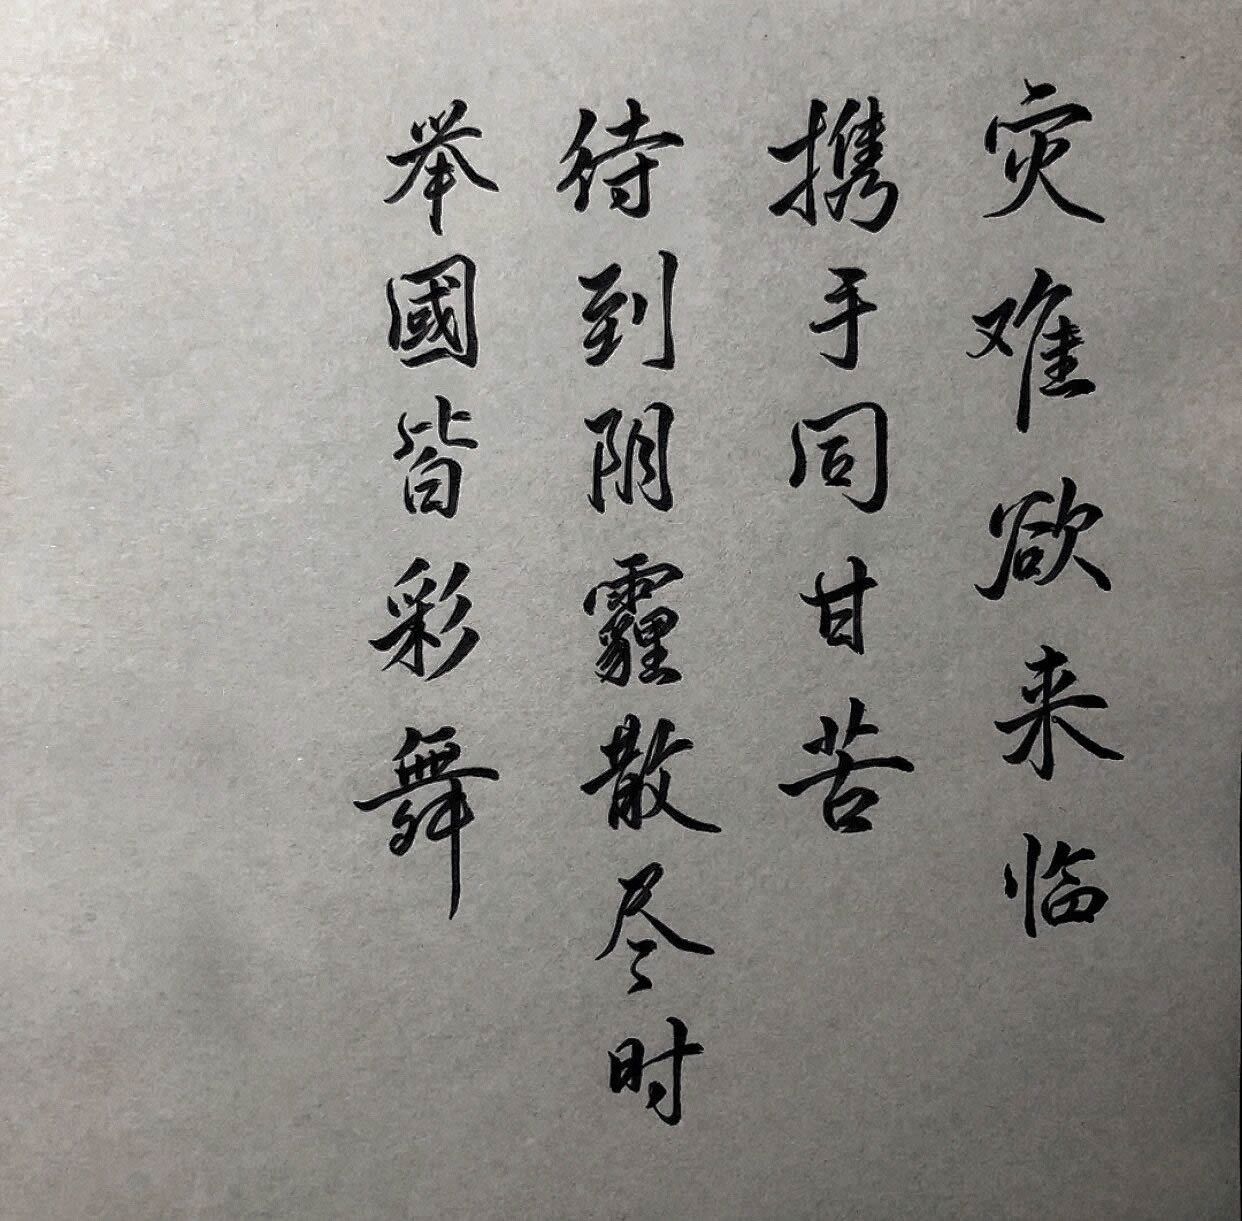 灾难欲来临
携手同甘苦
待到阴霾散尽时
举國皆彩舞